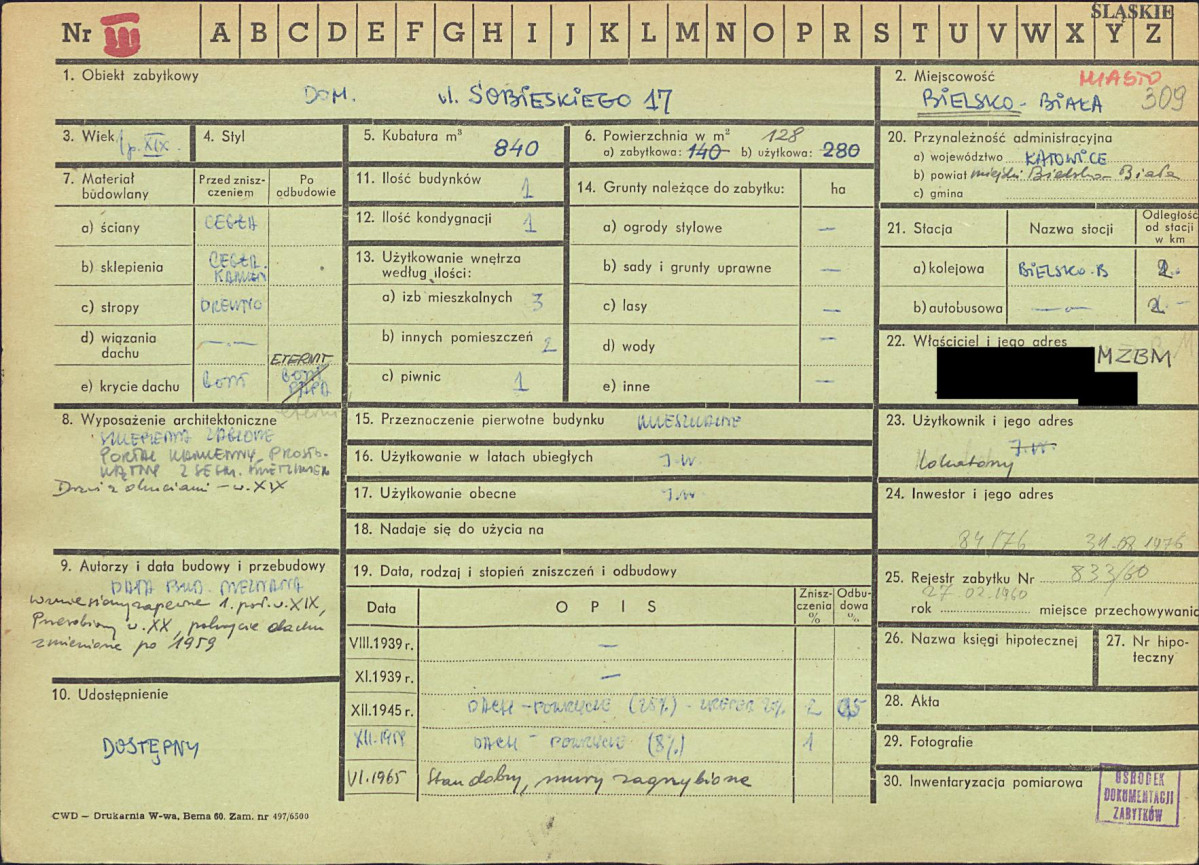 ŚLĄSKIE
Nr III A B C D E F G H I J K L M N O P R S T U V W X Y Z
1. Obiekt zabytkowy
DOM. ul. SOBIESKIEGO 17
2. Miejscowość MIASTO
BIELSKO-BIAŁA 309
3. Wiek p. XIX.
4. Styl
5. Kubatura m³
840
6. Powierzchnia w m² 128
a) zabytkowa: 140 b) użytkowa: 280
20. Przynależność administracyjna
a) województwo KATOWICE
b) powiat miejski Bielsko-Biała
c) gmina
7. Materiał budowlany
Przed zniszczeniem
Po odbudowie
a) ściany CEGŁA
b) sklepienia CEGŁA. KAMIEŃ
c) stropy DREWNO
d) wiązania dachu —·—
e) krycie dachu GONT ETERNIT GONT PAPA
11. Ilość budynków 1
12. Ilość kondygnacji 1
13. Użytkowanie wnętrza
według ilości:
a) izb mieszkalnych 3
b) innych pomieszczeń 2
c) piwnic 1
14. Grunty należące do zabytku: ha
a) ogrody stylowe —
b) sady i grunty uprawne —
c) lasy —
d) wody —
e) inne —
21. Stacja
Nazwa stacji
Odległość od stacji w km
a) kolejowa BIELSKO-B 2.
b) autobusowa —·— 2.-
22. Właściciel i jego adres
MZBM
8. Wyposażenie architektoniczne
SKLEPIENIA ŻAGLOWE
PORTAL KAMIENNY, PROSTO-
KĄTNY Z SEGM.
Drzwi z okuciami - w. XIX
15. Przeznaczenie pierwotne budynku MIESZKALNE
16. Użytkowanie w latach ubiegłych J.W.
17. Użytkowanie obecne J.W.
18. Nadaje się do użycia na
23. Użytkownik i jego adres
J.W.
lokatorzy
24. Inwestor i jego adres
84/76 31.08 1976
9. Autorzy i data budowy i przebudowy
DATA BUD. NIEZNANA
wzniesiony zapewne 1. poł. w. XIX,
Przerobiony w. XX, pokrycie dachu
zmienione po 1959
10. Udostępnienie
DOSTĘPNY
19. Data, rodzaj i stopień zniszczeń i odbudowy
Data
OPIS
Zniszczenia %
Odbudowa %
VIII.1939 r. —
XI.1939 r. —
XII.1945 r. DACH - POKRYCIE (25%) 2
XII.1959 DACH - POKRYCIE (8%) 1
VI.1965 Stan dobry, mury zagrzybione
25. Rejestr zabytku Nr 833/60
27.02.1960
rok miejsce przechowywania
26. Nazwa księgi hipotecznej
27. Nr hipoteczny
28. Akta
29. Fotografie
30. Inwentaryzacja pomiarowa
OŚRODEK
DOKUMENTACJI
ZABYTKÓW
CWD — Drukarnia W-wa, Bema 60. Zam. nr 497/6500